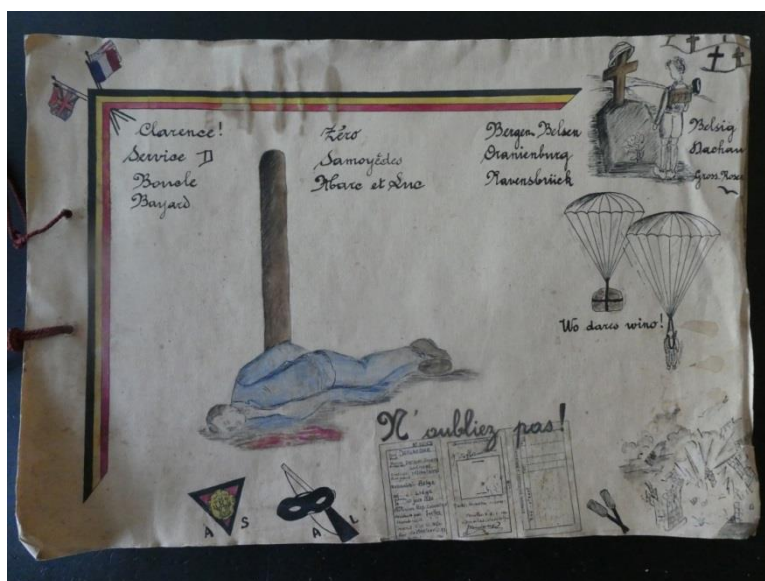 Clarence!
Service D
Boucle
Bayard
Zéro
Samoyèdes
Marc et Luc
Bergen Belsen
Oranienburg
Ravensbrück
Belsig
Dachau
Gross.Rosen
Wo dares wins!
N'oubliez pas!
A S
A L